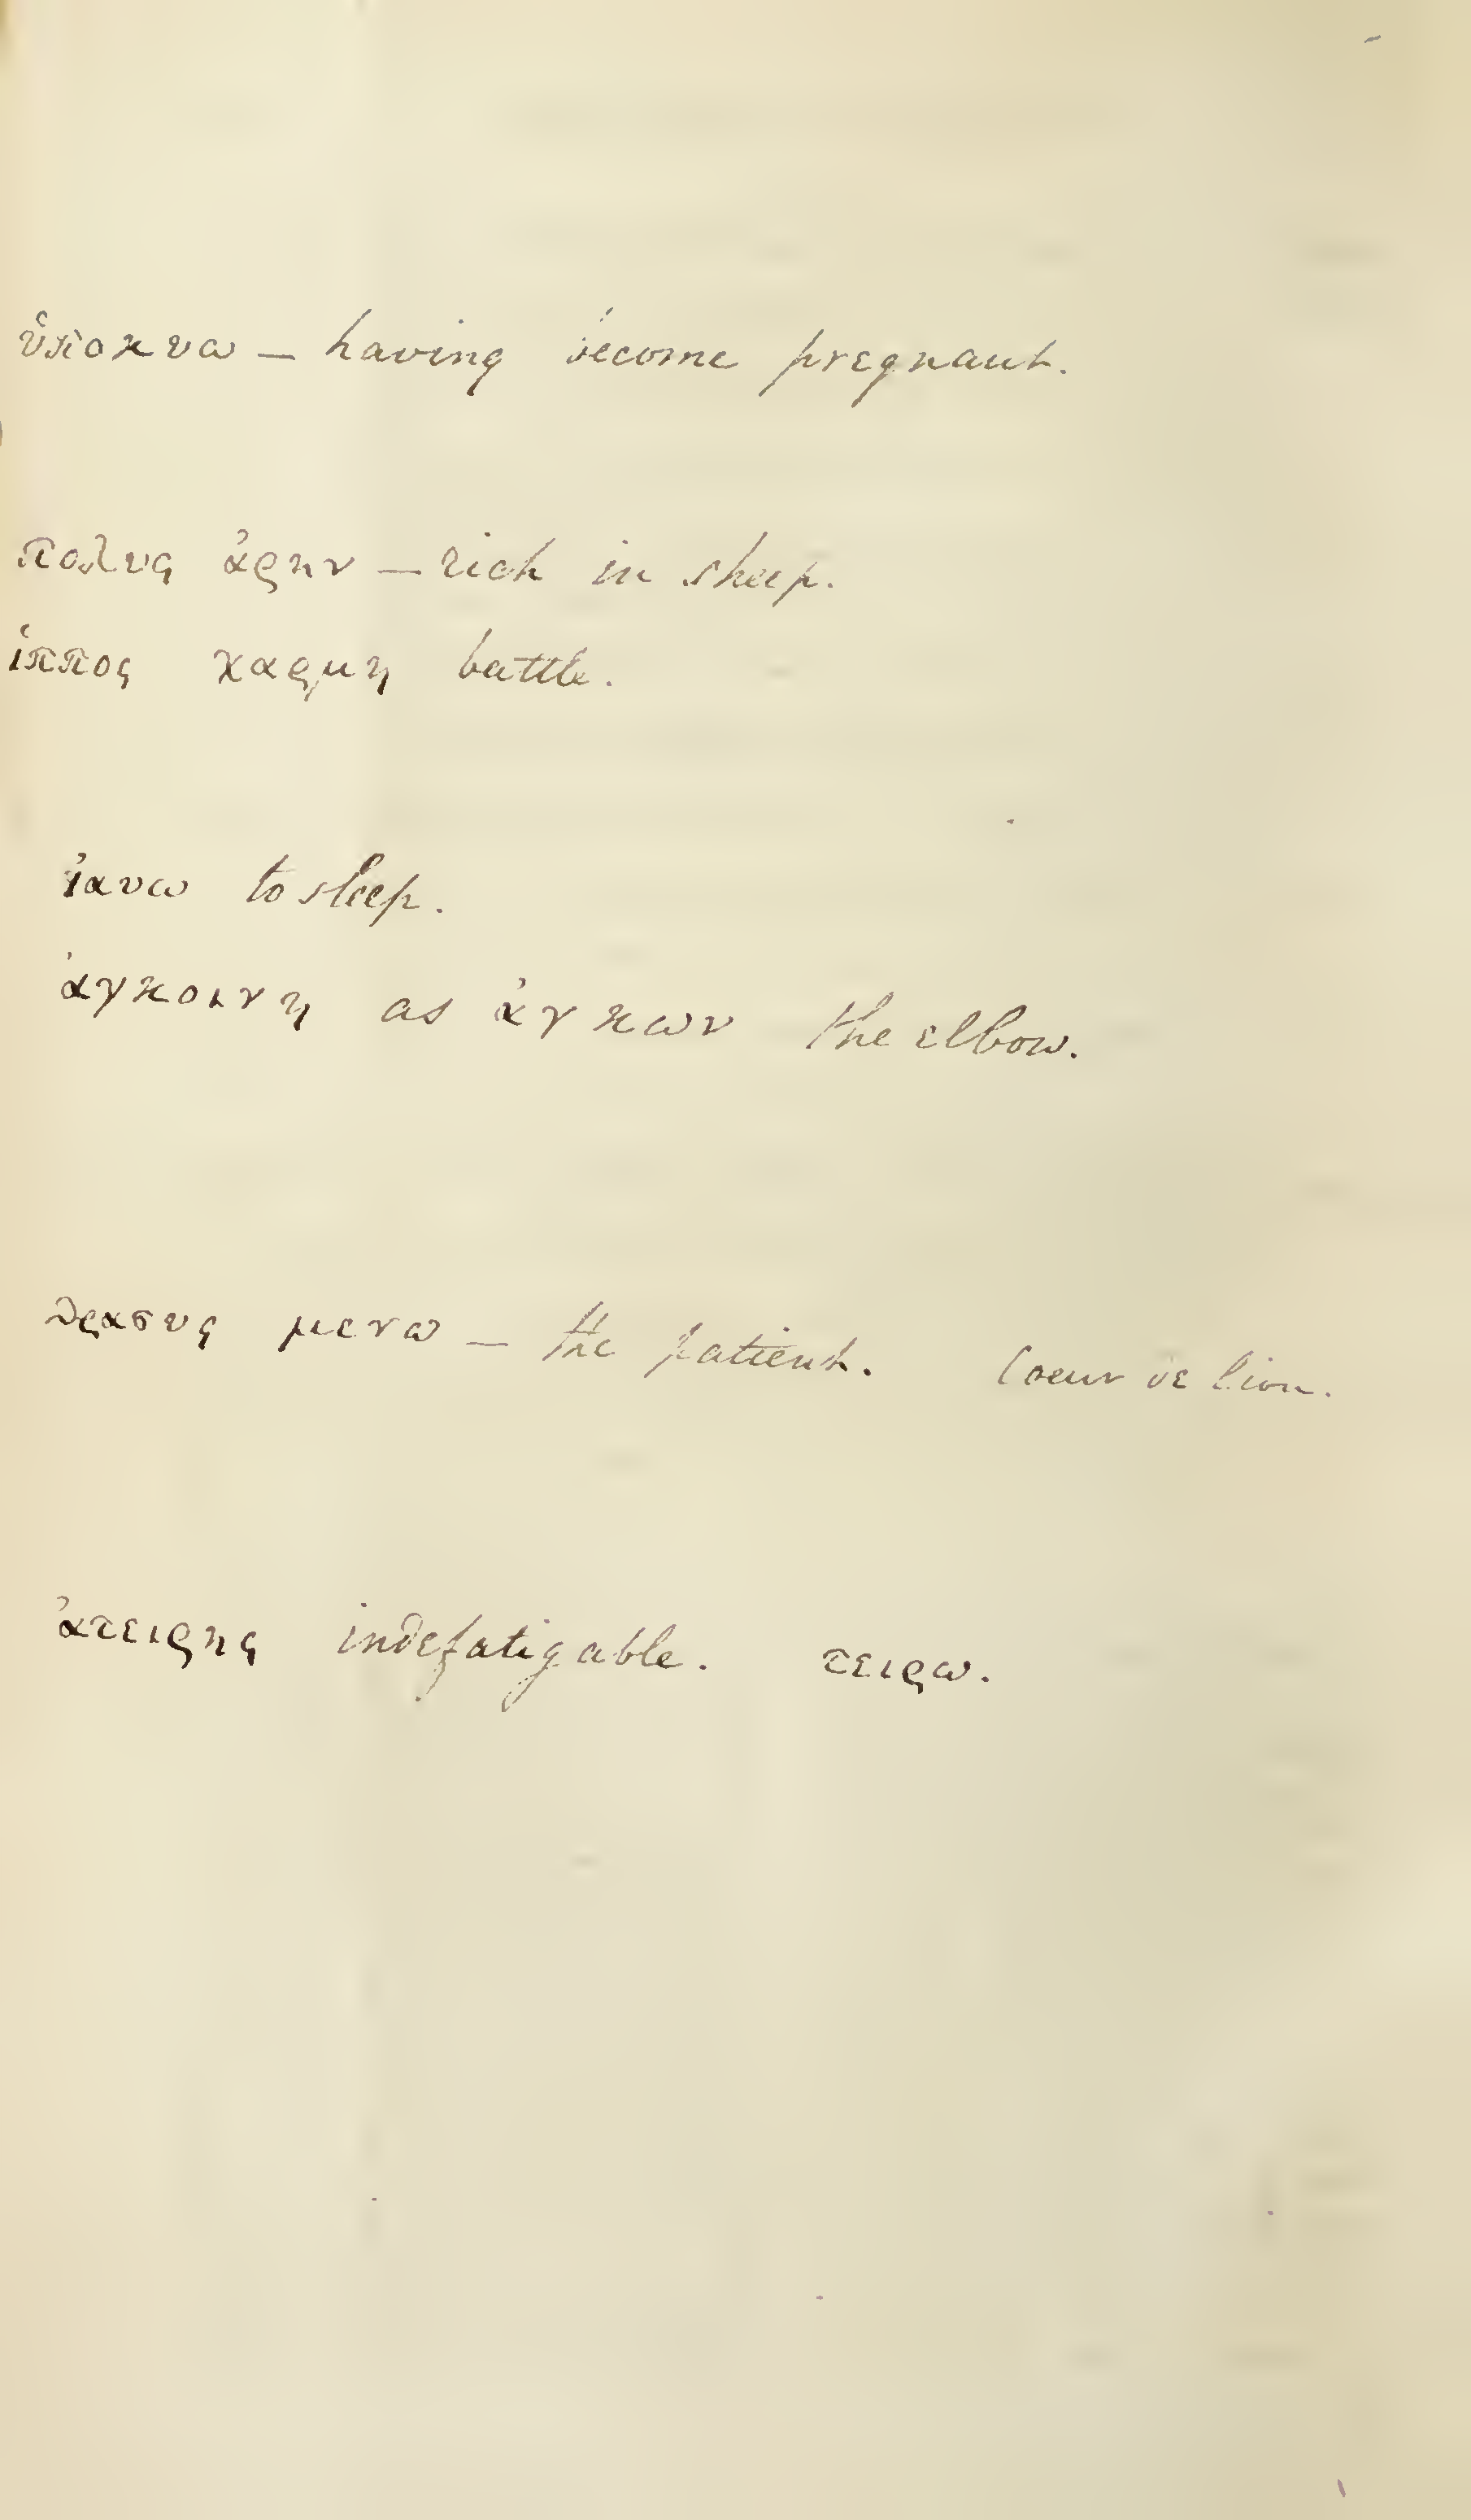 ὑποκυω — having become pregnant.
πολυς ἀρην — rich in sheep.
ἱππος χαρμη battle.
ἰαυω to sleep.
ἀγκοινη as ἀγκων the elbow.
θρασυς μενω — the patient. Coeur de lion.
ἀτειρης indefatigable. τειρω.